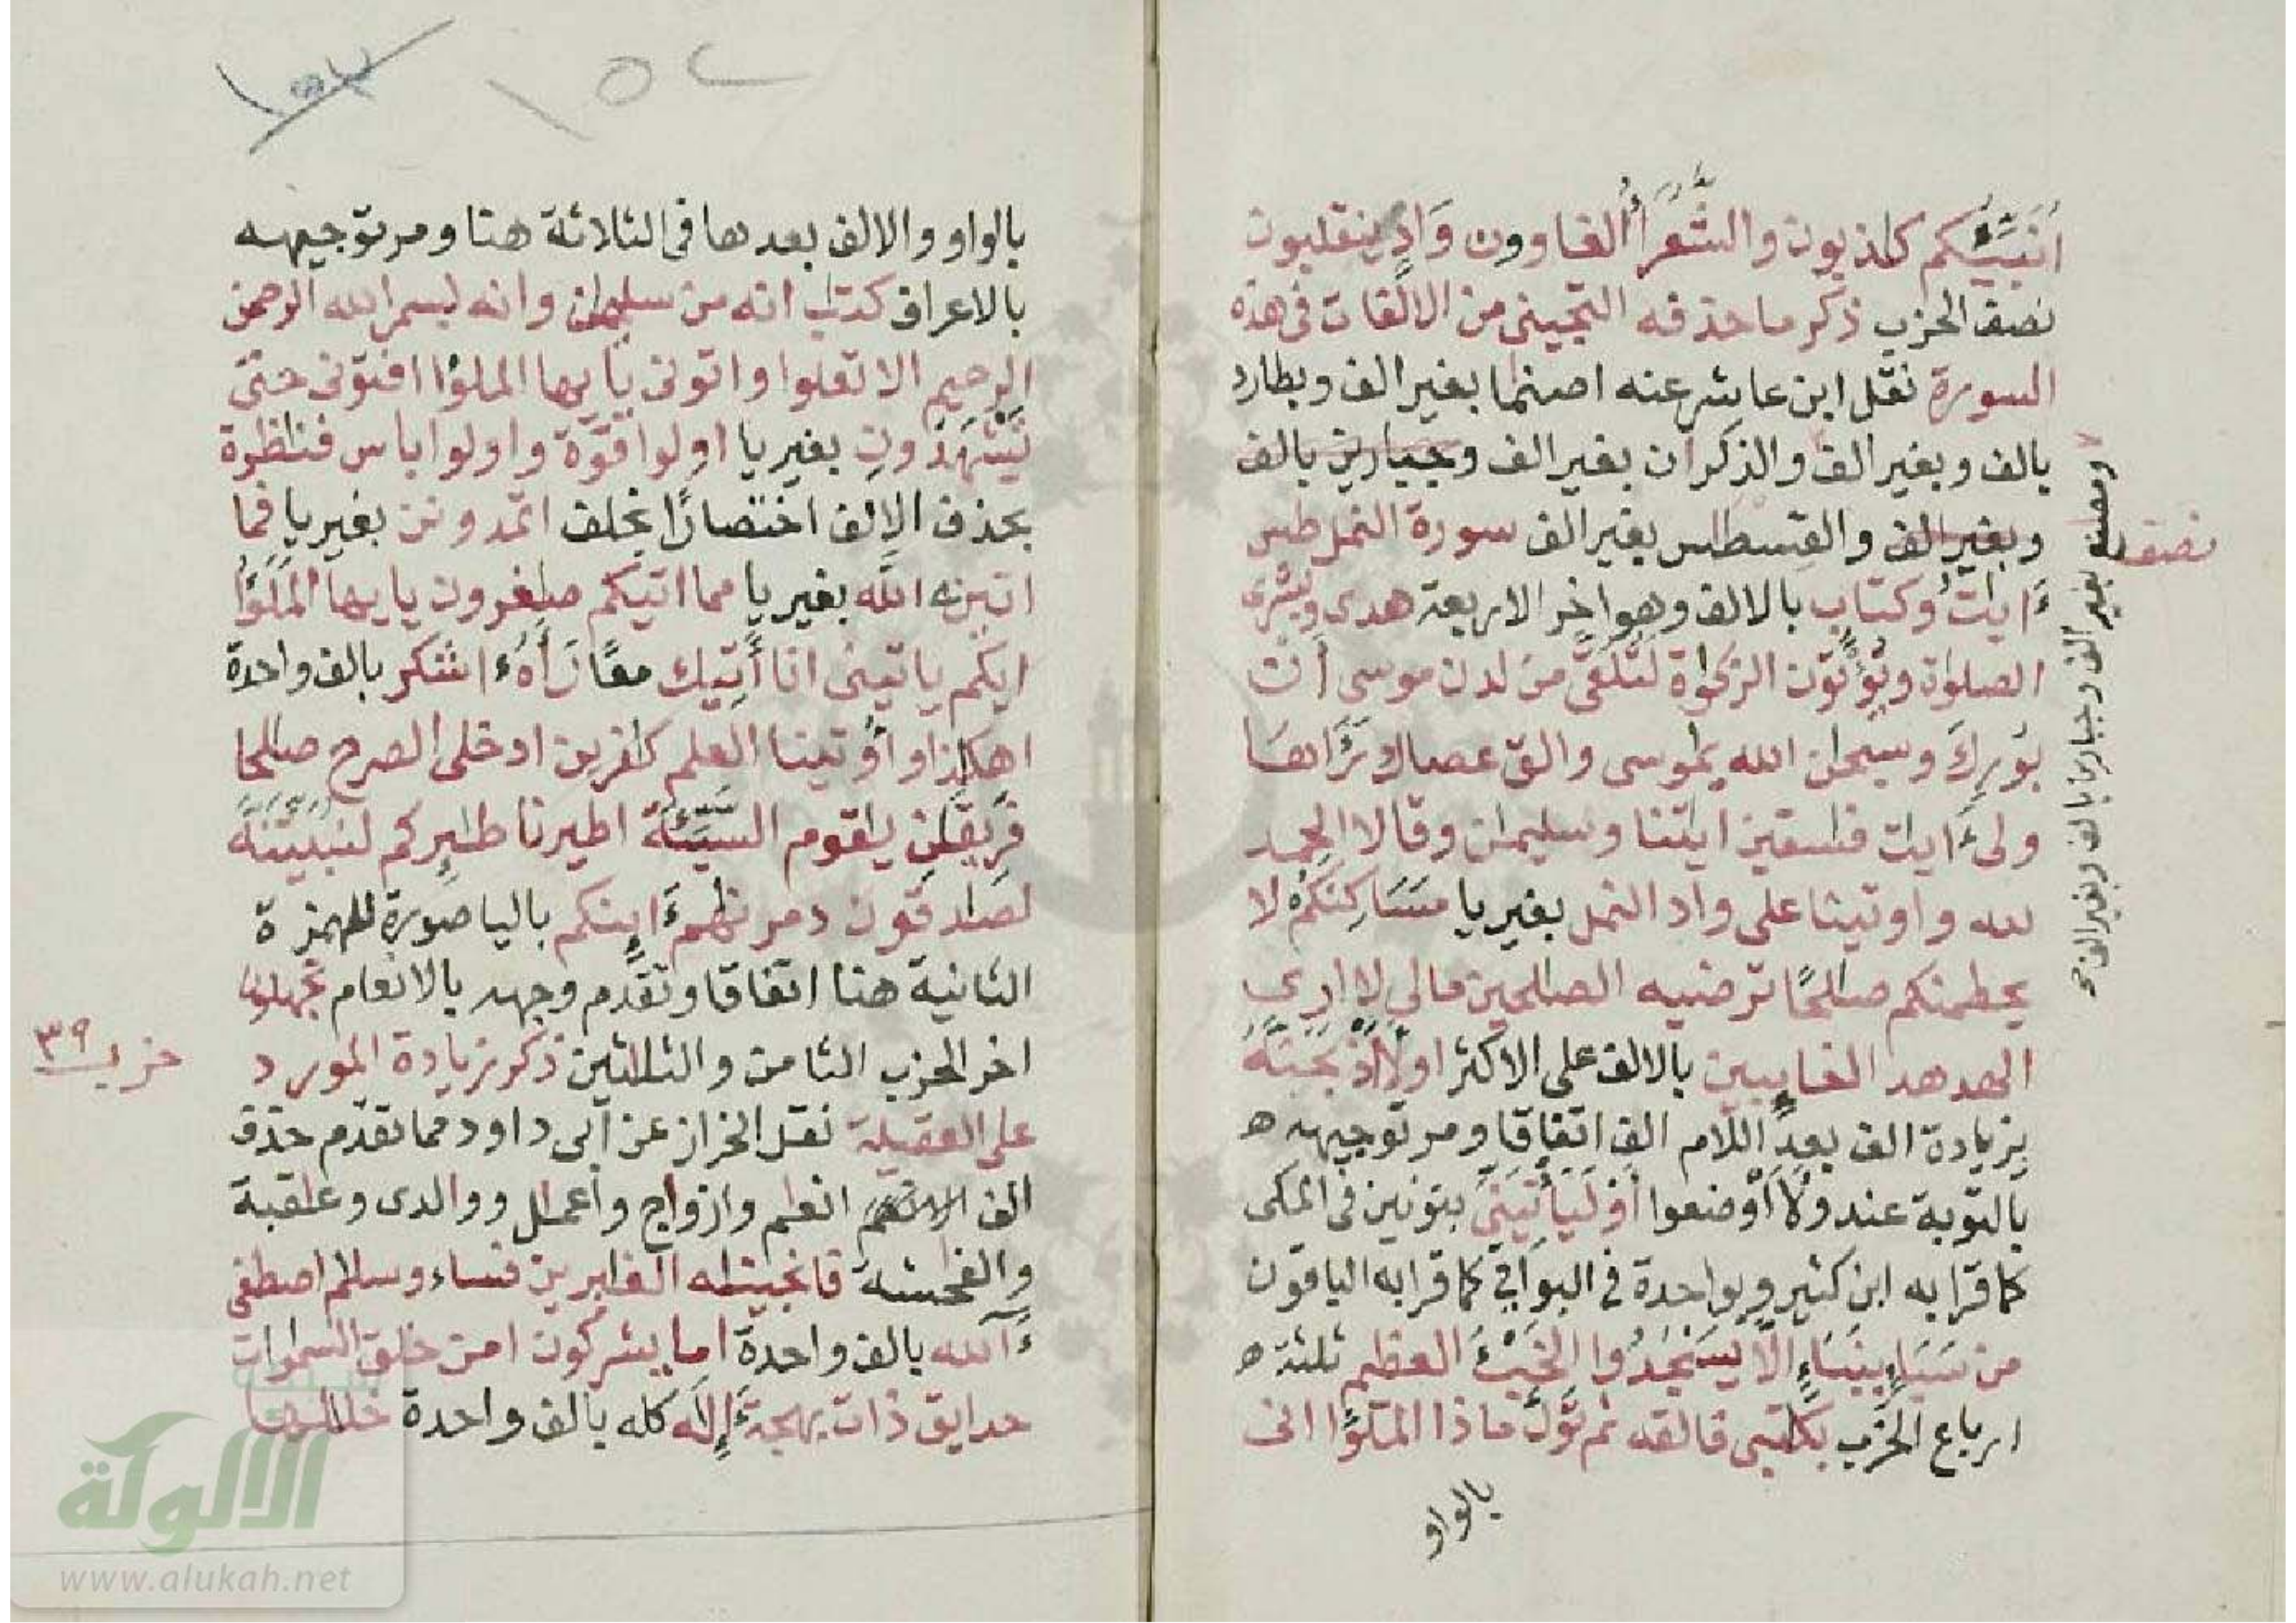 أنبئكم كاذبون والشعراء الغاوون وَادٍ ينقلبون
نصف الحزب ذكر ما حذفه التجيبى من الالفات فى هذه
السورة نقل ابن عاشر عنه اصنما بغير الف وبطارد
بالف وبغير الف والذكران بغير الف وجبارين بالف
وبغير الف والقسطاس بغير الف سورة النمل طس
ءايت وكتاب بالالف وهو اخر الاربعة هدى وبشرى
الصلوة ويؤتون الزكوة لتلقى من لدن موسى أن
بورك وسبحن الله يموسى والق عصاك رءاها
ولى ءايت فسقين ايتنا وسليمن وقالا الحمد
لله واوتينا على واد النمل بغير يا مسكنكم لا
يحطمنكم صلحا ترضيه الصلحين مالى لا ارى
الهدهد الغايبين بالالف على الاكثر اولااذبحنه
بزيادة الف بعد اللام الف اتفاقا ومر توجيهه ه
بالتوبة عند ولأاوضعوا أو ليأتينى بنونين فى المكى
كما قرا به ابن كثير وبواحدة فى البواقى كما قرا به الباقون
من سبإ بنبإ الا يسجدوا الخبء العظيم ثلثة ه
ارباع الحزب بكتبى فالقه ثم تول ماذا الملؤا انى
بالواو
ومصنع بغير الف وجبارين بالف وبغير الف صح
نصف
١٥٢
بالواو والالف بعدها فى الثلاثة هنا ومر توجيهه
بالاعراف كتب انه من سليمن وانه بسم الله الرحمن
الرحيم الا تعلوا واتونى يايها الملؤا افتونى حتى
تشهدون بغير يا اولوا قوة واولوا باس فنظرة
بحذف الالف اختصارا بخلف اتمدونن بغير يا فما
اتين ه الله بغير يا مما اتيكم صغرون يايها الملؤا
ايكم ياتينى انا أتيك مقال رأه ءاشكر بالف واحدة
اهكذا واوتينا العلم كفرين ادخلى الصرح صلحا
فريقن يقوم السيئة اطيرنا طيركم لنبيتنه
لصدقون دمرنهم ءاينكم باليا صورة للهمزة
الثانية هنا اتفاقا وتقدم وجهه بالانعام تجهلون
اخر الحزب الثامن والثلثين ذكر زيادة المورد
على العقيلة نقل الخراز عن ابى داود مما تقدم حذف
الف انعم وازواج واعمل ووالدى وعقبة
والفحشة فانجينه الغابرين فساء وسلم اصطفى
ءآلله بالف واحدة اما يشركون امن خلق السموات
حدايق ذات بهجة ءإله كله بالف واحدة خللها
حزب ٣٩
الألوكة
www.alukah.net